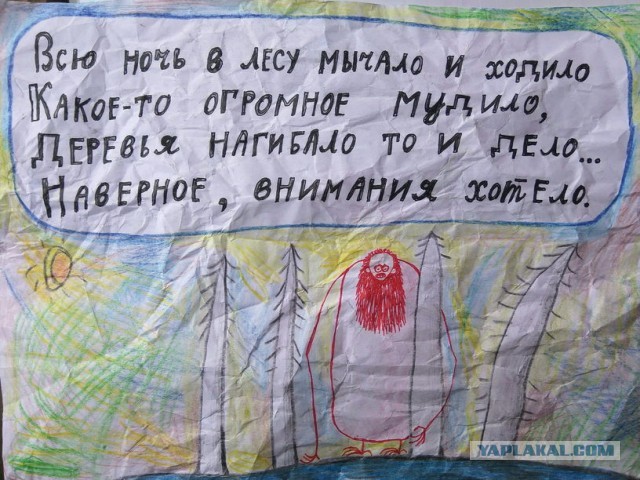 Всю ночь в лесу мычало и ходило
Какое-то огромное мудило,
Деревья нагибало то и дело...
Наверное, внимания хотело.
YAPLAKAL.COM